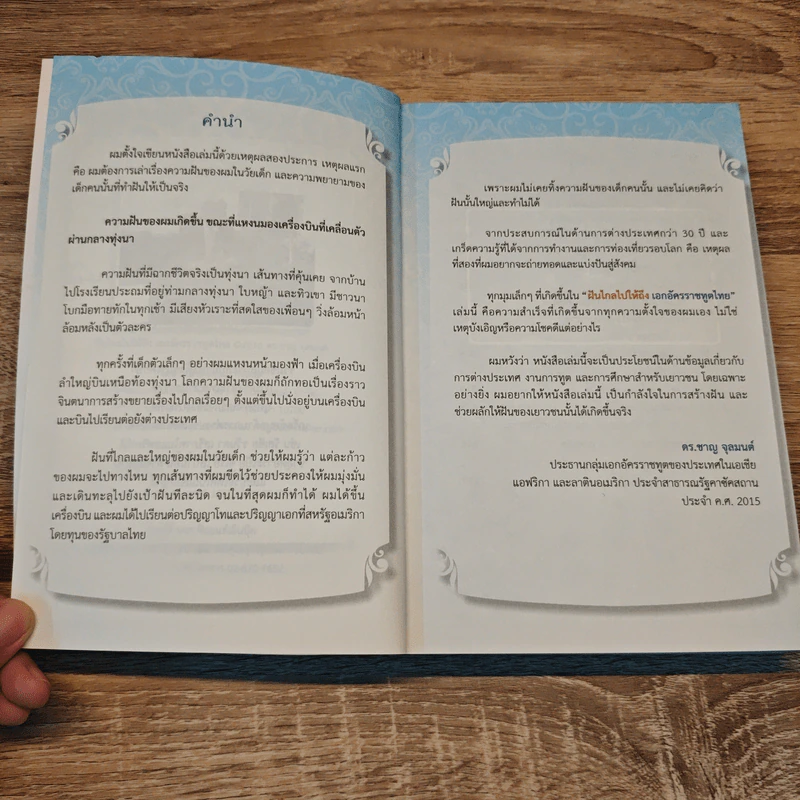 คำนำ
ผมตั้งใจเขียนหนังสือเล่มนี้ด้วยเหตุผลสองประการ เหตุผลแรก
คือ ผมต้องการเล่าเรื่องความฝันของผมในวัยเด็ก และความพยายามของ
เด็กคนนั้นที่ทำฝันให้เป็นจริง
ความฝันของผมเกิดขึ้น ขณะที่แหงนมองเครื่องบินที่เคลื่อนตัว
ผ่านกลางทุ่งนา
ความฝันที่มีฉากชีวิตจริงเป็นทุ่งนา เส้นทางที่คุ้นเคย จากบ้าน
ไปโรงเรียนประถมที่อยู่ท่ามกลางทุ่งนา ใบหญ้า และทิวเขา มีชาวนา
โบกมือทายทักในทุกเช้า มีเสียงหัวเราะที่สดใสของเพื่อนๆ วิ่งล้อมหน้า
ล้อมหลังเป็นตัวละคร
ทุกครั้งที่เด็กตัวเล็กๆ อย่างผมแหงนหน้ามองฟ้า เมื่อเครื่องบิน
ลำใหญ่บินเหนือท้องทุ่งนา โลกความฝันของผมก็ถักทอเป็นเรื่องราว
จินตนาการสร้างขยายเรื่องไปไกลเรื่อยๆ ตั้งแต่ขึ้นไปนั่งอยู่บนเครื่องบิน
และบินไปเรียนต่อยังต่างประเทศ
ฝันที่ไกลและใหญ่ของผมในวัยเด็ก ช่วยให้ผมรู้ว่า แต่ละก้าว
ของผมจะไปทางไหน ทุกเส้นทางที่ผมขีดไว้ช่วยประคองให้ผมมุ่งมั่น
และเดินทะลุไปยังเป้าฝันทีละนิด จนในที่สุดผมก็ทำได้ ผมได้ขึ้น
เครื่องบิน และผมได้ไปเรียนต่อปริญญาโทและปริญญาเอกที่สหรัฐอเมริกา
โดยทุนของรัฐบาลไทย
เพราะผมไม่เคยทิ้งความฝันของเด็กคนนั้น และไม่เคยคิดว่า
ฝันนั้นใหญ่และทำไม่ได้
จากประสบการณ์ในด้านการต่างประเทศกว่า 30 ปี และ
เกร็ดความรู้ที่ได้จากการทำงานและการท่องเที่ยวรอบโลก คือ เหตุผล
ที่สองที่ผมอยากจะถ่ายทอดและแบ่งปันสู่สังคม
ทุกมุมเล็กๆ ที่เกิดขึ้นใน "ฝันไกลไปให้ถึง เอกอัครราชทูตไทย"
เล่มนี้ คือความสำเร็จที่เกิดขึ้นจากทุกความตั้งใจของผมเอง ไม่ใช่
เหตุบังเอิญหรือความโชคดีแต่อย่างไร
ผมหวังว่า หนังสือเล่มนี้จะเป็นประโยชน์ในด้านข้อมูลเกี่ยวกับ
การต่างประเทศ งานการทูต และการศึกษาสำหรับเยาวชน โดยเฉพาะ
อย่างยิ่ง ผมอยากให้หนังสือเล่มนี้ เป็นกำลังใจในการสร้างฝัน และ
ช่วยผลักให้ฝันของเยาวชนนั้นได้เกิดขึ้นจริง
ดร.ชาญ จุลมนต์
ประธานกลุ่มเอกอัครราชทูตของประเทศในเอเชีย
แอฟริกา และลาตินอเมริกา ประจำสาธารณรัฐคาซัคสถาน
ประจำ ค.ศ. 2015